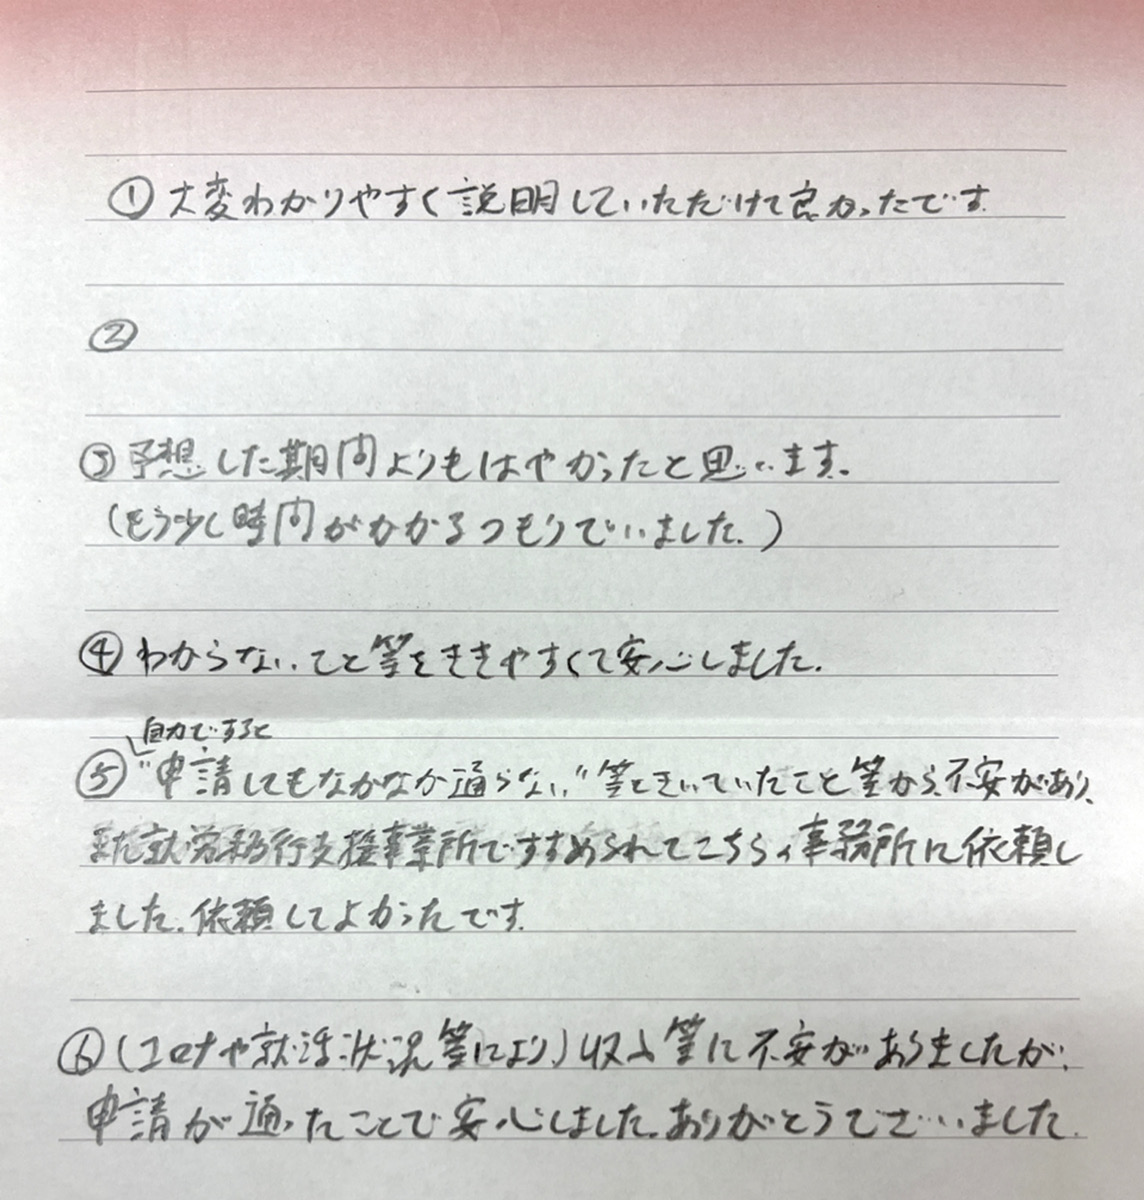 ① 大変わかりやすく説明していただけて良かったです.
②
③ 予想した期間よりもはやかったと思います.
(もう少し時間がかかるつもりでいました.)
④ わからないこと等をききやすくて安心しました.
自力ですると
⑤ "申請してもなかなか通らない"等ときいていたこと等から、不安があり、
就労移行支援事業所ですすめられてこちらの事務所に依頼し
ました. 依頼してよかったです.
⑥ (コロナや就活状況等により)収入等に不安がありましたが、
申請が通ったことで安心しました.ありがとうございました.